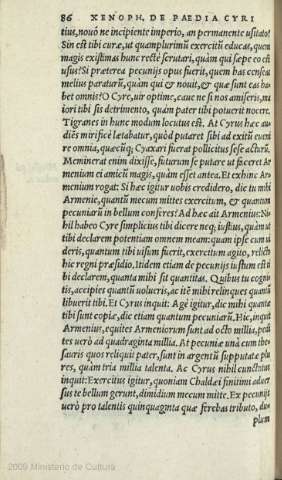 86 XENOPH. DE PAEDIA CYRI
tius, nouò ne incipiente imperio, an permanente usitato?
Sin est tibi curæ, ut quamplurimū exercitū educas, quem
magis existimas hunc recte scrutari, quàm qui sæpe eo est
usus? Si præterea pecunijs opus fuerit, quem has censeas
melius paraturū, quàm qui & nouit, & quæ sunt eas ha-
bet omnis? O Cyre, uir optime, caue ne si nos amiseris, ma
iori tibi sis detrimento, quàm pater tibi potuerit nocere.
Tigranes in hunc modum locutus est. At Cyrus hæc au-
diēs mirificè lætabatur, quòd putaret sibi ad exitū eueni
re omnia, quæcūq; Cyaxari fuerat pollicitus sese acturū.
Meminerat enim dixisse, futurum se putare ut faceret Ar
menium ei amicū magis, quàm esset antea. Et exhinc Ar-
menium rogat: Si hæc igitur uobis credidero, dic tu mihi
Armenie, quantū mecum mittes exercitum, & quantum
pecuniarū in bellum conferes? Ad hæc ait Armenius: Ni
hil habeo Cyre simplicius tibi dicere neq; iustius, quàm ut
tibi declarem potentiam omnem meam: quam ipse cum ui
deris, quantum tibi uisum fuerit, exercitum agito, relicto
hic regni præsidio. Itidem etiam de pecunijs iustum est ti
bi declarem, quanta mihi sit quantitas. Quibus tu cogni-
tis, accipies quantū uolueris, ac itē mihi relinques quantū
libuerit tibi. Et Cyrus inquit: Age igitur, dic mihi quanta
tibi sunt copiæ, dic etiam quantum pecuniarū. Hic, inquit
Armenius, equites Armeniorum sunt ad octo millia, pedi
tes uerò ad quadraginta millia. At pecuniæ unà cum the-
sauris quos reliquit pater, sunt in argentū supputatæ plu
res, quàm tria millia talenta. Ac Cyrus nihil cunctatus
inquit: Exercitus igitur, quoniam Chaldæi finitimi aduer
sus te bellum gerunt, dimidium mecum mitte. Ex pecunijs
uerò pro talentis quinquaginta quæ ferebas tributo, du-
plum
2009 Ministerio de Cultura